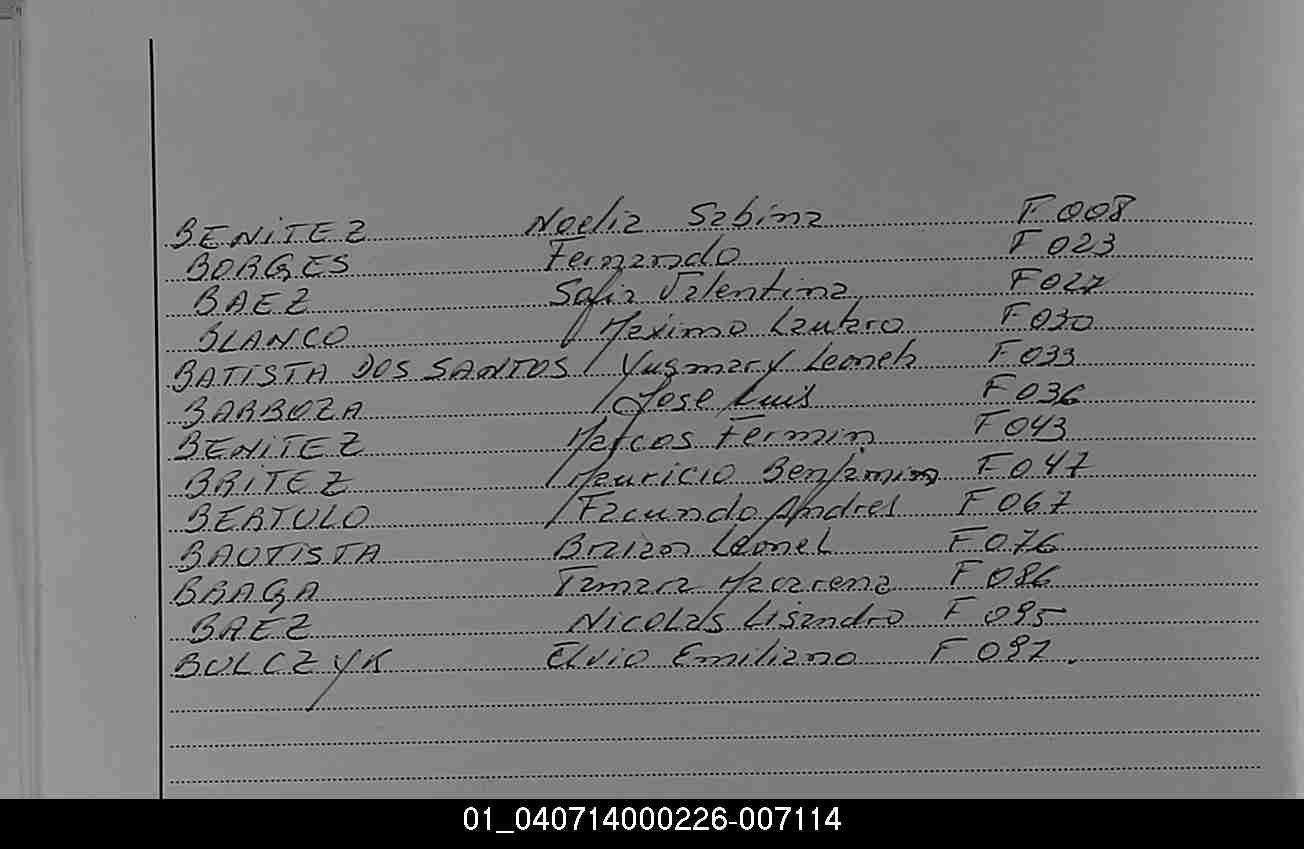 BENITEZ Noelia Sabina F008
BORGES Fernando F023
BAEZ Sofia Valentina F027
BLANCO Maximo Lautaro F030
BATISTA DOS SANTOS Yusmary Leonela F033
BARBOZA Jose Luis F036
BENITEZ Marcos Fermin F043
BRITEZ Mauricio Benjamin F047
BERTULO Facundo Andres F067
BAUTISTA Braian Leonel F076
BRAGA Tamara Macarena F086
BAEZ Nicolas Lisandro F095
BULCZYK Elvio Emiliano F097.
01_040714000226-007114